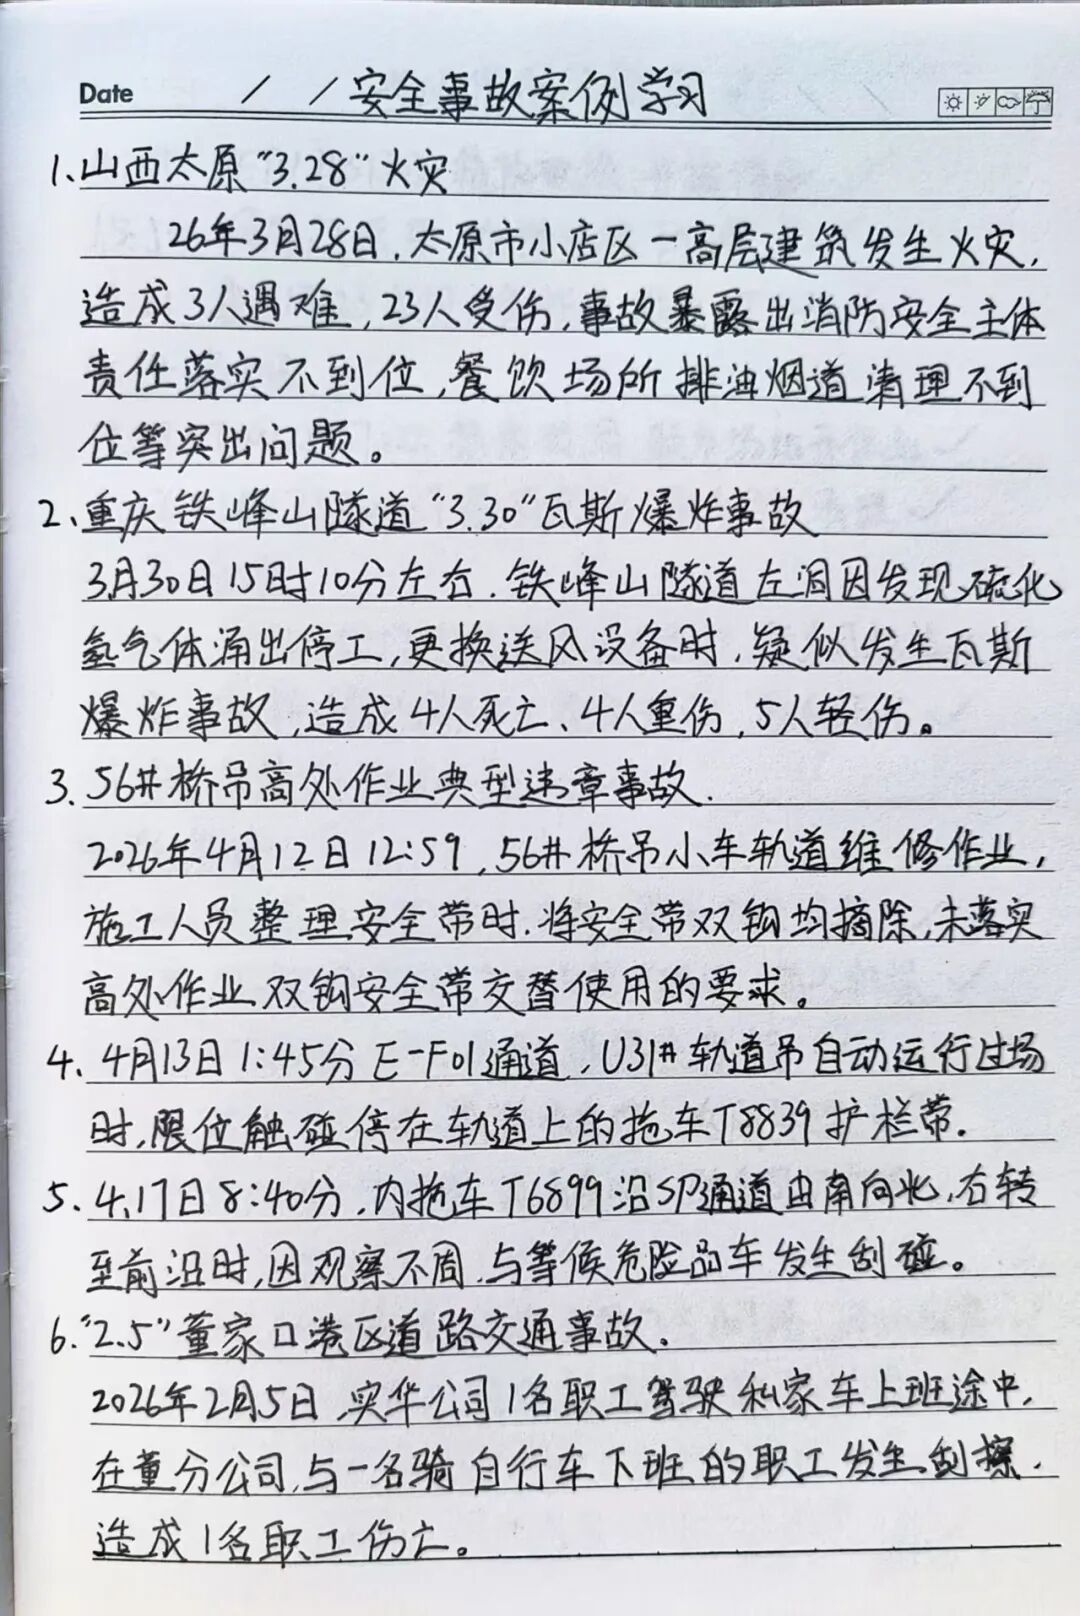 Date / / 安全事故案例学习
1、山西太原“3.28”火灾
26年3月28日,太原市小店区一高层建筑发生火灾,
造成3人遇难,23人受伤,事故暴露出消防安全主体
责任落实不到位,餐饮场所排油烟道清理不到
位等突出问题。
2、重庆铁峰山隧道“3.30”瓦斯爆炸事故
3月30日15时10分左右,铁峰山隧道左洞因发现硫化
氢气体涌出停工,更换送风设备时,疑似发生瓦斯
爆炸事故,造成4人死亡、4人重伤,5人轻伤。
3、56#桥吊高处作业典型违章事故.
2026年4月12日12:59,56#桥吊小车轨道维修作业,
施工人员整理安全带时,将安全带双钩均摘除,未落实
高处作业双钩安全带交替使用的要求。
4、4月13日1:45分E-F01通道,U31#轨道吊自动运行过场
时,限位触碰停在轨道上的拖车T8839护栏带.
5、4.17日8:40分,内拖车T6899沿SP通道由南向北,右转
至前沿时,因观察不周,与等候危险品车发生刮碰。
6.“2.5”董家口港区道路交通事故.
2026年2月5日,实华公司1名职工驾驶私家车上班途中,
在董分公司,与一名骑自行车下班的职工发生刮擦,
造成1名职工伤亡。